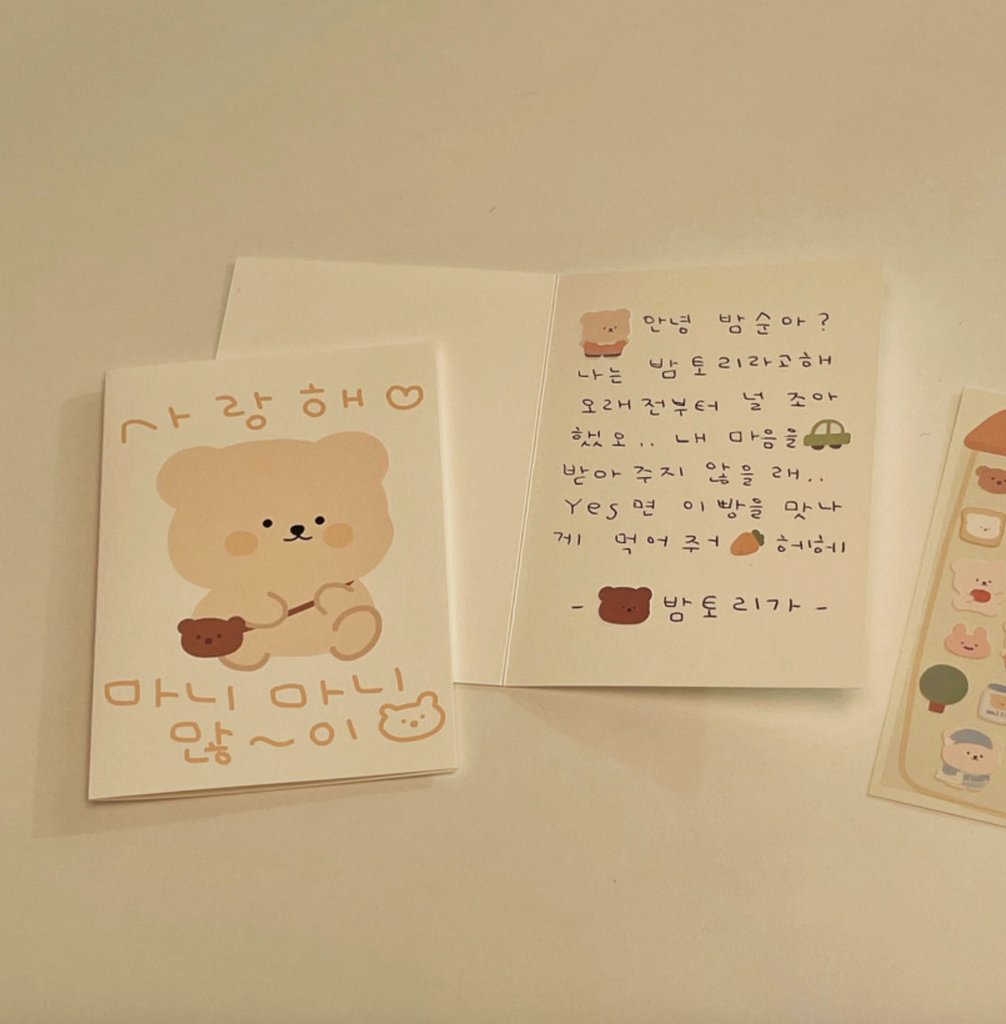 사랑해
마니 마니
많~이
안녕 밤순아?
나는 밤토리라고해
오래전부터 널 조아
했오.. 내 마음을
받아주지 않을래..
Yes면 이빵을 맛나
게 먹어주거 헤헤
- 밤토리가 -